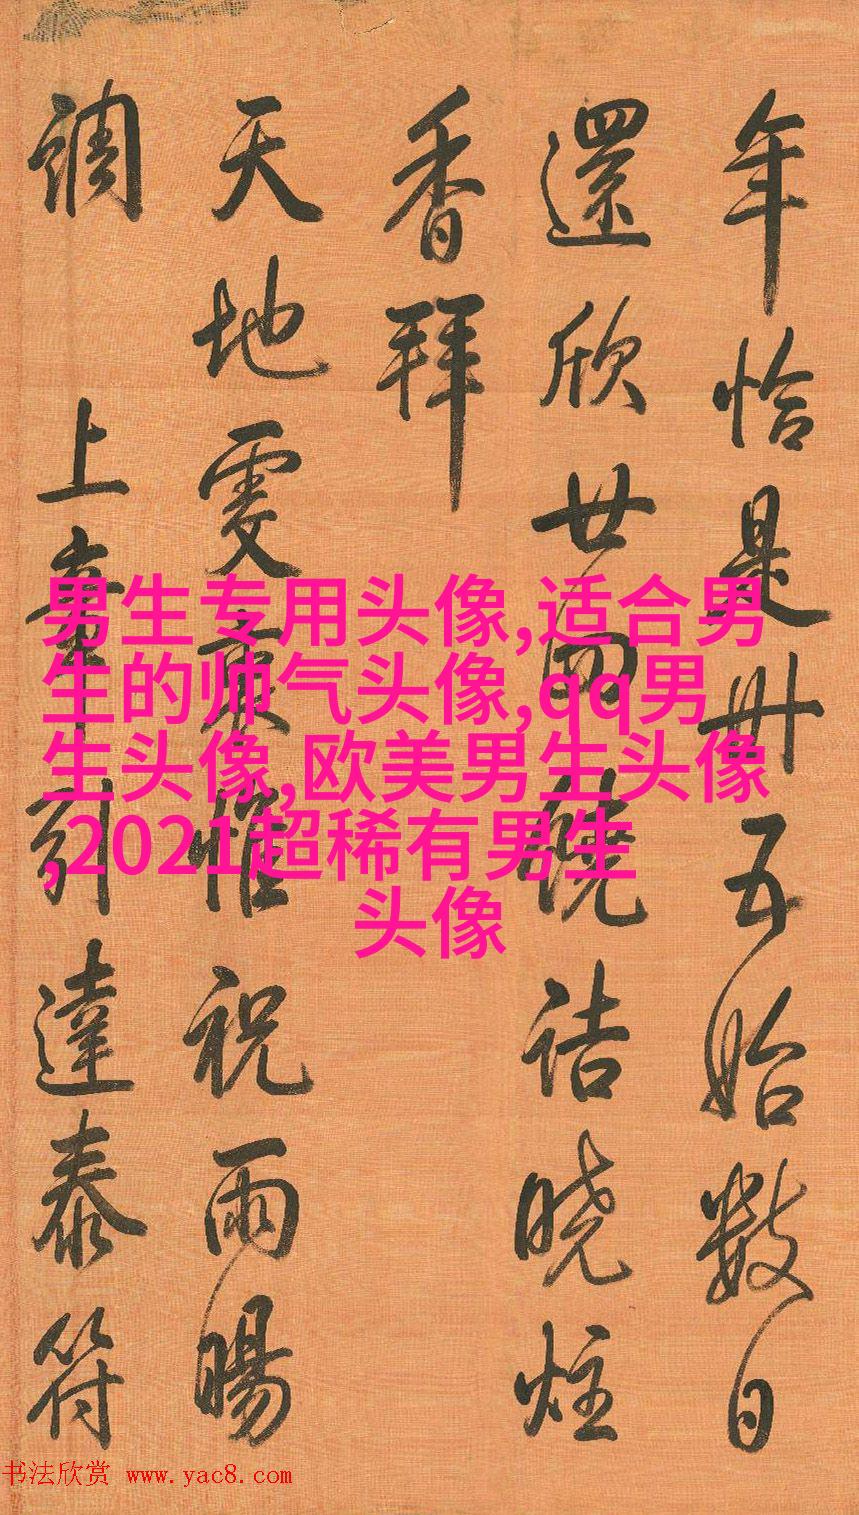 年恰是卅五始數日
還欣詰曉炷
香拜
天地虔衷惟祝雨暘
調 上章引達泰符
男生专用头像,适合男
生的帅气头像,qq男
生头像,欧美男生头像
,2021超稀有男生
头像
书法欣赏 www.yac8.com